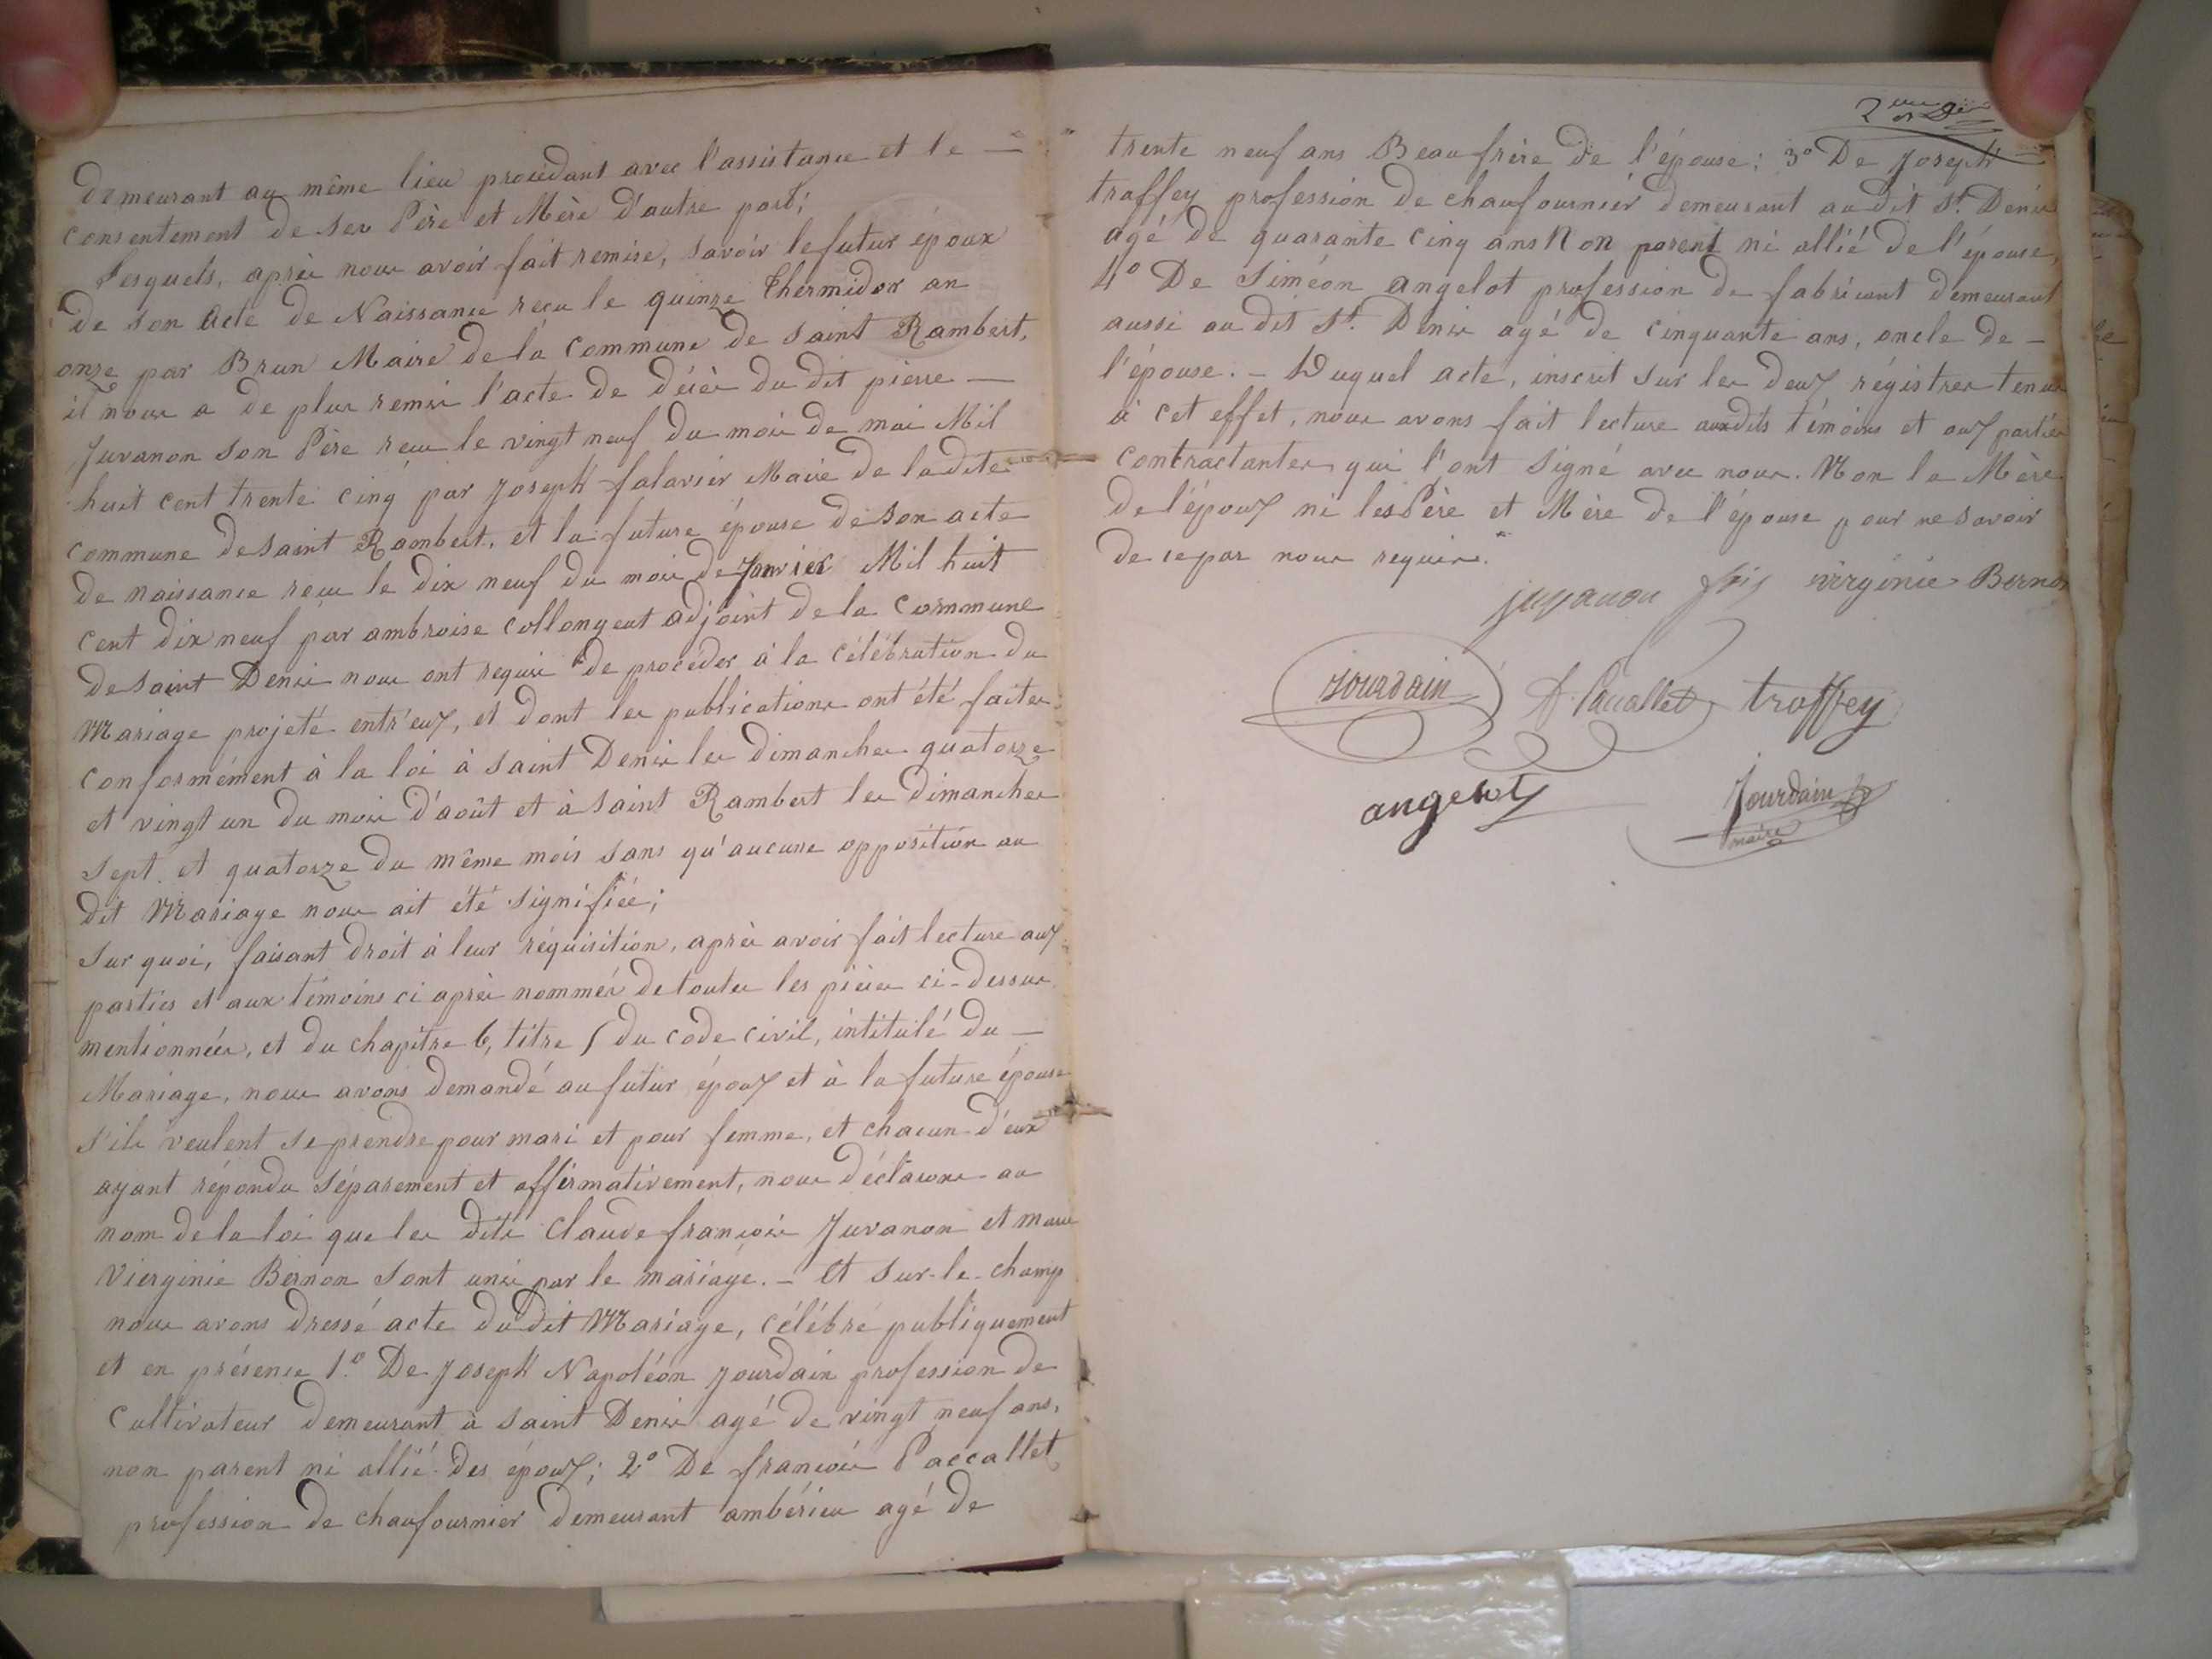 demeurant au même lieu procédant avec l'assistance et le —
consentement de ses Père et Mère d'autre part;
Lesquels, après nous avoir fait remise, savoir le futur époux
de son acte de Naissance reçu le quinze Thermidor an
onze par Brun Maire de la Commune de Saint Rambert,
il nous a de plus remis l'acte de décès du dit pierre —
Juvanon son Père reçu le vingt neuf du mois de mai Mil
huit cent trente cinq par Joseph falavier Maire de la dite
commune de Saint Rambert, et la future épouse de son acte
de naissance reçu le dix neuf du mois de Janvier Mil huit
cent dix neuf par ambroise Collongeat adjoint de la Commune
de Saint Denis nous ont requis de procéder à la célébration du
Mariage projeté entr'eux, et dont les publications ont été faites
conformément à la loi à Saint Denis les dimanches quatorze
et vingt un du mois d'août et à Saint Rambert les dimanches
sept et quatorze du même mois sans qu'aucune opposition au
dit Mariage nous ait été signifiée;
Sur quoi, faisant droit à leur réquisition, après avoir fait lecture aux
parties et aux témoins ci après nommés de toutes les pièces ci-dessus
mentionnées, et du chapitre 6, titre 5 du code civil, intitulé du —
Mariage, nous avons demandé au futur époux et à la future épouse
s'ils veulent se prendre pour mari et pour femme, et chacun d'eux
ayant répondu séparement et affirmativement, nous déclarons au
nom de la loi que les dits Claude françois Juvanon et marie
Vierginie Bernon sont unis par le mariage. — Et sur-le-champ
nous avons dressé acte du dit Mariage, célébré publiquement
et en présence 1.° De Joseph Napoléon Jourdain profession de
Cultivateur demeurant à Saint Denis agé de vingt neuf ans,
non parent ni allié des époux; 2° De françois Paccallet
profession de chaufournier demeurant ambérieu agé de
2me
trente neuf ans Beau frère de l'épouse; 3° De Joseph —
traffey profession de chaufournier demeurant audit St. Denis
agé de quarante cinq ans Non parent ni allié de l'épouse,
4° De Siméon angelot profession de fabricant demeurant
aussi au dit St. Denis agé de cinquante ans, oncle de —
l'épouse. — Duquel acte, inscrit sur les deux régistres tenus
à cet effet, nous avons fait lecture auxdits témoins et aux parties
Contractantes qui l'ont signé avec nous. Non la Mère
de l'époux ni les Père et Mère de l'épouse pour ne savoir
de ce par nous requis.
juvanon fois virginie Bernon
jourdain f. Paccallet traffey
angelot Jourdain
maire